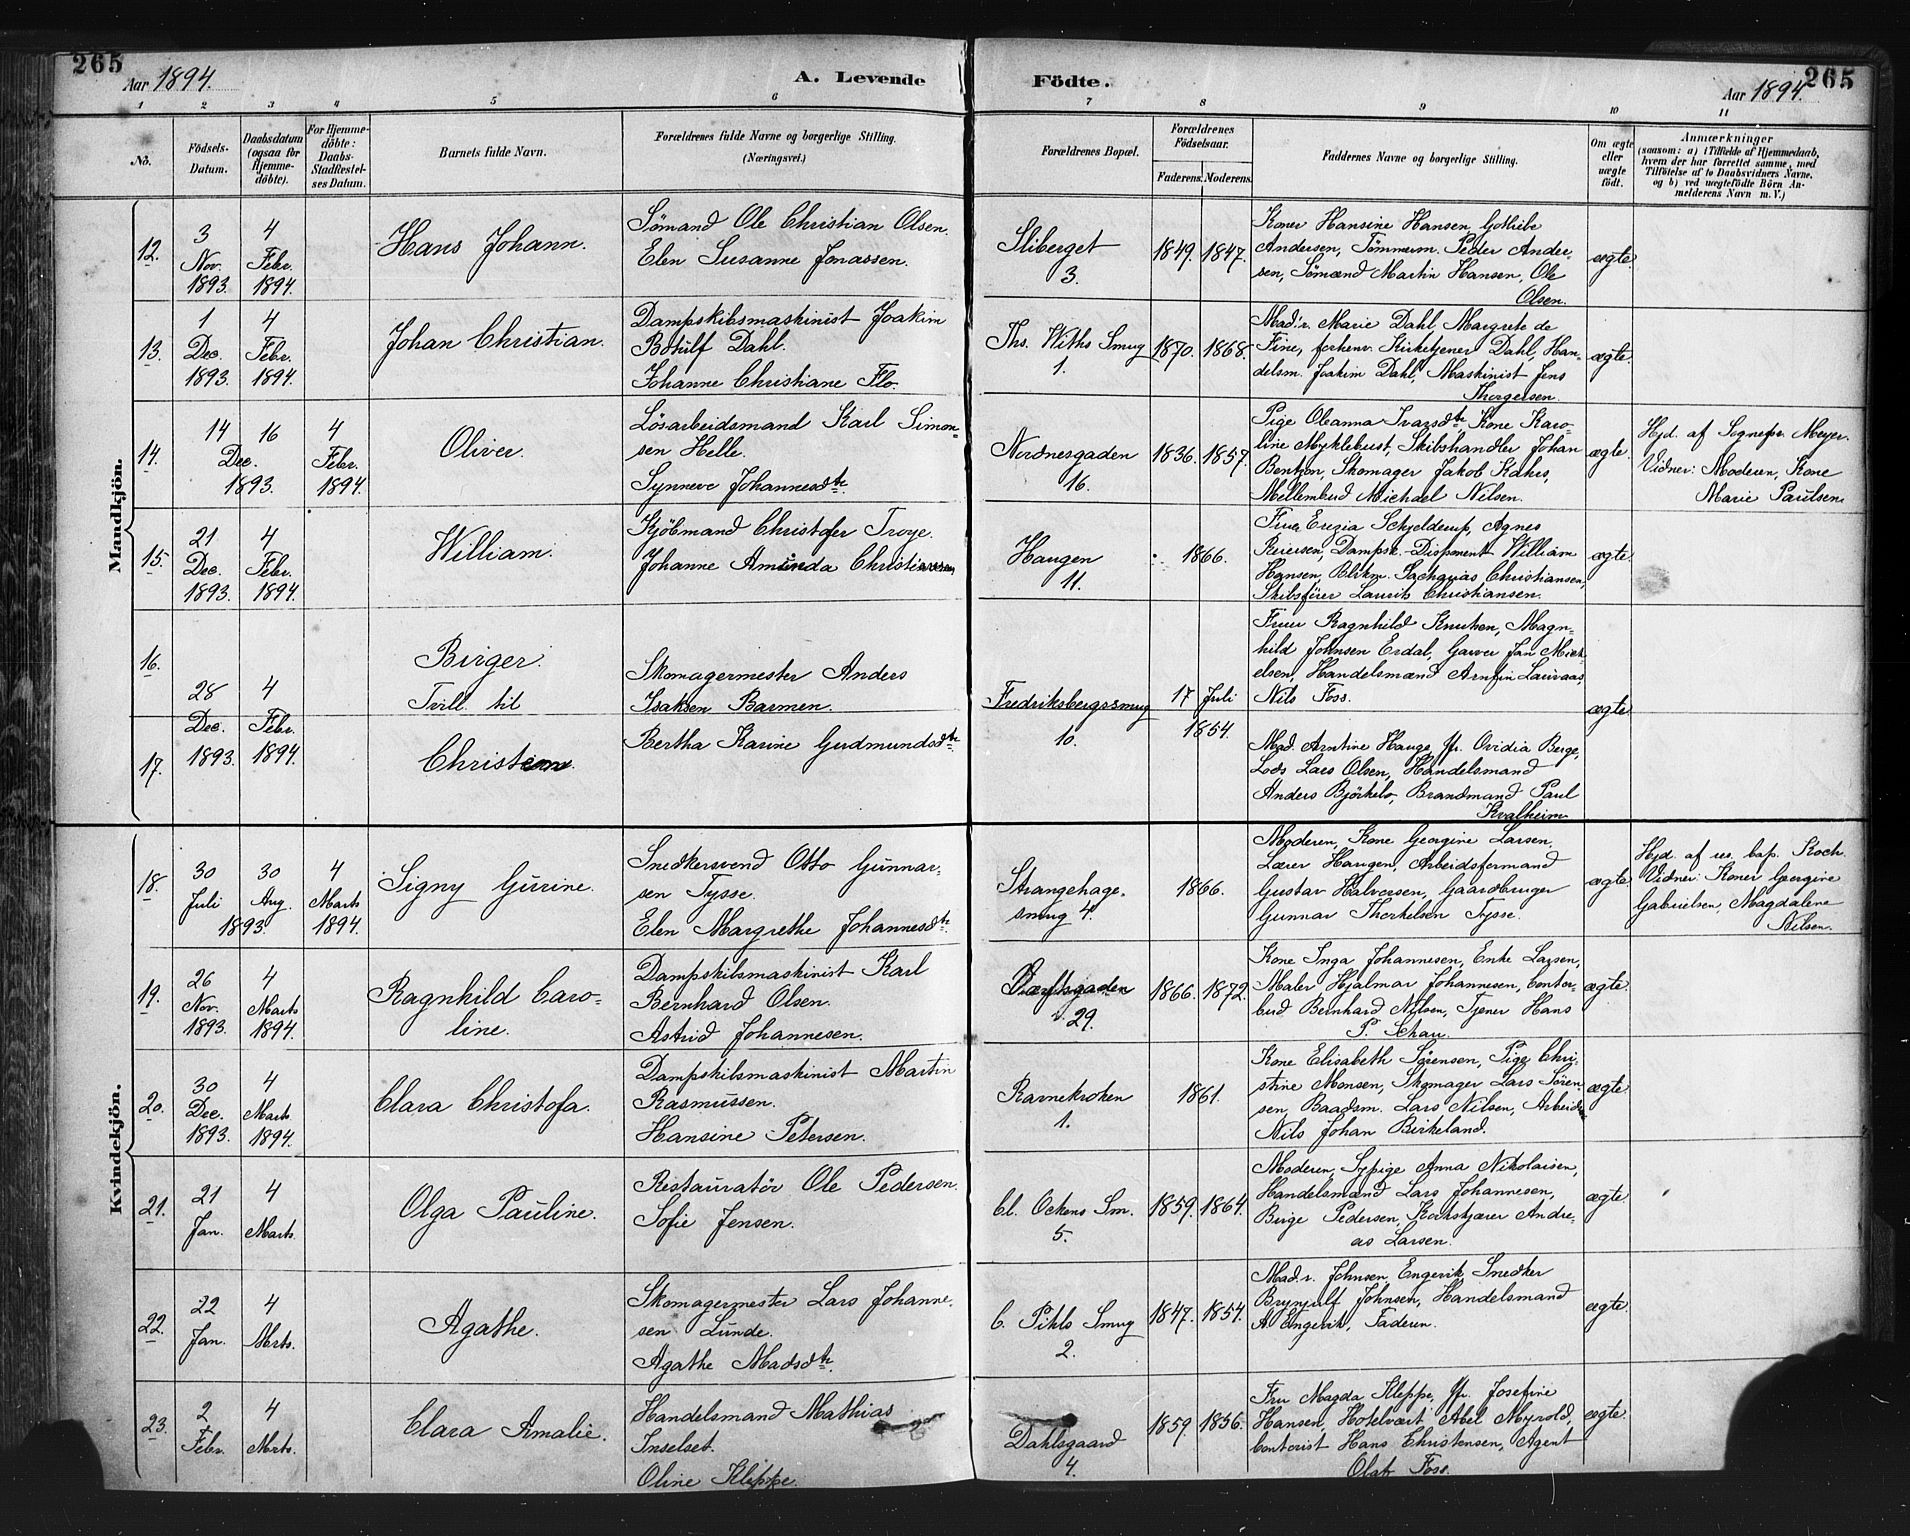 265
Aar 1894.
A. Levende Födte.
Aar 1894.
265
1 2 3 4 5 6 7 8 9 10 11
No.
Födsels-Datum.
Daabsdatum (ogsaa for Hjemme-döbte).
For Hjemme-döbte: Daabs-Stadfæstel-ses Datum.
Barnets fulde Navn.
Forældrenes fulde Navne og borgerlige Stilling.
(Næringsvei.)
Forældrenes Bopæl.
Forældrenes Födselsaar.
Faderens. Moderens.
Faddernes Navne og borgerlige Stilling.
Om ægte eller uægte födt.
Anmærkninger
(saasom: a) i Tilfælde af Hjemmedaab,
hvem der har forrettet samme, med
Tilföielse af to Daabsvidners Navne,
og b) ved uægtefödte Börn An-
melderens Navn m. V.)
Mandkjön.
12.
3 Nov. 1893.
4 Febr. 1894.
Hans Johann.
Sømand Ole Christian Olsen.
Elen Susanne Jonassen.
Sliberget
3.
1849. 1847.
Koner Hansine Hansen, Gothilde
Andersen, Tömmerm. Peder Ander-
sen, Sömænd Martin Hansen, Ole
Olsen.
ægte.
13.
1 Dec. 1893.
4 Febr. 1894.
Johan Christian.
Dampskibsmaskinist Joakim
Botulf Dahl.
Johanne Christiane Flo.
Ths. Withs Smug
1.
1870. 1868.
Mad.r. Marie Dahl, Margrete de
Fine, forhenv. Kirketjener Dahl, Han-
delsm. Joakim Dahl, Maskinist Jens
Thorgersen.
ægte.
14.
14 16
Dec.
1893.
4 Febr. 1894.
Oliver.
Lösarbeidsmand Karl Simon-
sen Helle.
Synneve Johannesdtr.
Nordnesgaden
16.
1836. 1857.
Pige Oleanna Ivarsdtr., Kone Karo-
line Myklebust, Skibshandler Johan
Bentzon, Skomager Jakob Kahrs,
Mellembud Michael Nilsen.
ægte.
Hjd. af Sognepr. Meyer.
Vidner: Moderen, Kone
Marie Paulsen.
15.
21 Dec. 1893.
4 Febr. 1894.
William.
Kjöbmand Christofer Troye.
Johanne Aminda Christiansen
Haugen
11.
1866.
Fruer Eregia Schjelderup, Agnes
Reiersen, Dampsk.-Disponent William
Hansen, Blikm. Zacharias Christiansen,
Skibsförer Laurits Christiansen.
ægte.
16.
Birger.
Tvill. til
28 Dec. 1893.
4 Febr. 1894.
Skomagermester Anders
Isaksen Barmen.
Bertha Karine Gudmundsdtr.
Fredriksbergssmug
10.
17 Juli
1854.
Fruer Ragnhild Knutsen, Magn-
hild Johnsen Erdal, Garver Jan Mick-
elsen, Handelsmænd Arnfin Lauvaas,
Nils Foss.
ægte
17.
Christian.
Mad. Arntine Hauge, Jfr. Ovidia Berge,
Lods Lars Olsen, Handelsmand
Anders Björkelo, Brandmand Paul
Kvalheim
Kvindekjön.
18.
30 Juli
30 Aug.
1893.
4 Marts 1894.
Signy Gurine.
Snedkersvend Otto Gunnar-
sen Tysse.
Elen Margrethe Johannesdtr.
Strangehage-
smug 4.
1866.
Moderen, Kone Georgine Larsen,
Lærer Haugen, Arbeidsformand
Gustav Halvorsen, Gaardbruger
Gunnar Therkelsen Tysse.
ægte.
Hjd. af res. kap. Koch.
Vidner: Koner Georgine
Gabrielsen, Magdalene
Nilsen.
19.
26 Nov. 1893.
4 Marts 1894.
Ragnhild Caro-
line.
Dampskibsmaskinist Karl
Bernhard Olsen.
Astrid Johannesen.
Værftsgaden
29.
1866. 1872.
Kone Inga Johannesen, Enke Larsen,
Maler Hjalmar Johannesen, Contor-
bud Bernhard Nilsen, Tjener Hans
P. Schau.
ægte.
20.
30 Dec. 1893.
4 Marts 1894.
Clara Christofa.
Dampskibsmaskinist Martin
Rasmussen.
Hansine Petersen.
Ravnekroken
1.
1861.
Kone Elisabeth Sörensen, Pige Chri-
stine Monsen, Skomager Lars Sören-
sen, Baadsm. Lars Nilsen, Arbeidsm.
Nils Johan Birkeland.
ægte.
21.
21 Jan.
4 Marts.
Olga Pauline.
Restauratör Ole Pedersen.
Sofie Jensen.
Cl. Ockens Sm.
5.
1859. 1864.
Moderen, Sypige Anna Nikolaisen,
Handelsmænd Lars Johannesen,
Birge Pedersen, Kockskjører Andre-
as Larsen.
ægte.
22.
22 Jan.
4 Mrts.
Agathe.
Skomagermester Lars Johanne-
sen Lunde.
Agathe Madsdtr.
C. Pihls Smug
2.
1847. 1854.
Mad.r. Johnsen, Engevik, Snedker
Brynjulf Johnsen, Handelsmand
A. Engevik, Faderen.
ægte.
23.
2 Febr.
4 Mrts.
Clara Amalie.
Handelsmand Mathias
Inselset.
Oline Kleppe.
Dahlsgaard
4.
1859. 1856.
Fru Magda Kleppe, Jfr. Josefine
Hansen, Hotelvært Abel Myrold,
Contorist Hans Christensen, Agent
Olaf Foss.
ægte.